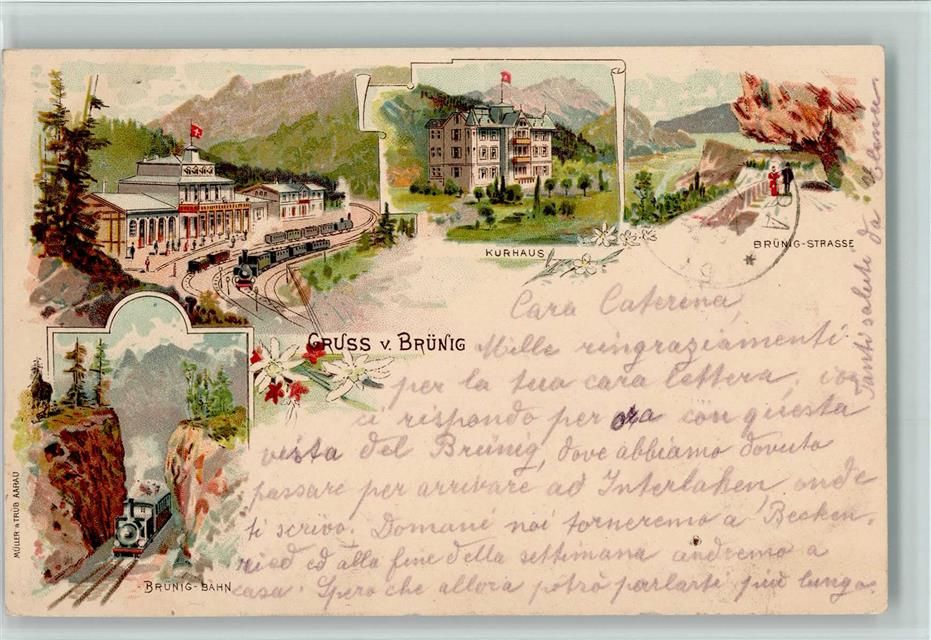 KURHAUS
BRÜNIG-STRASSE
GRUSS V. BRÜNIG
BRÜNIG-BAHN
MÜLLER & TRÜB AARAU
Cara Caterina,
Mille ringraziamenti
per la tua cara lettera, io
ci rispondo per ora con questa
vista del Brünig, dove abbiamo dovuto
passare per arrivare ad Interlaken, onde
ti scrivo. Domani noi torneremo a Becken-
ried ed alla fine della settimana andremo a
casa. Spero che allora potrò parlarti più lungo.
Tanti saluti da